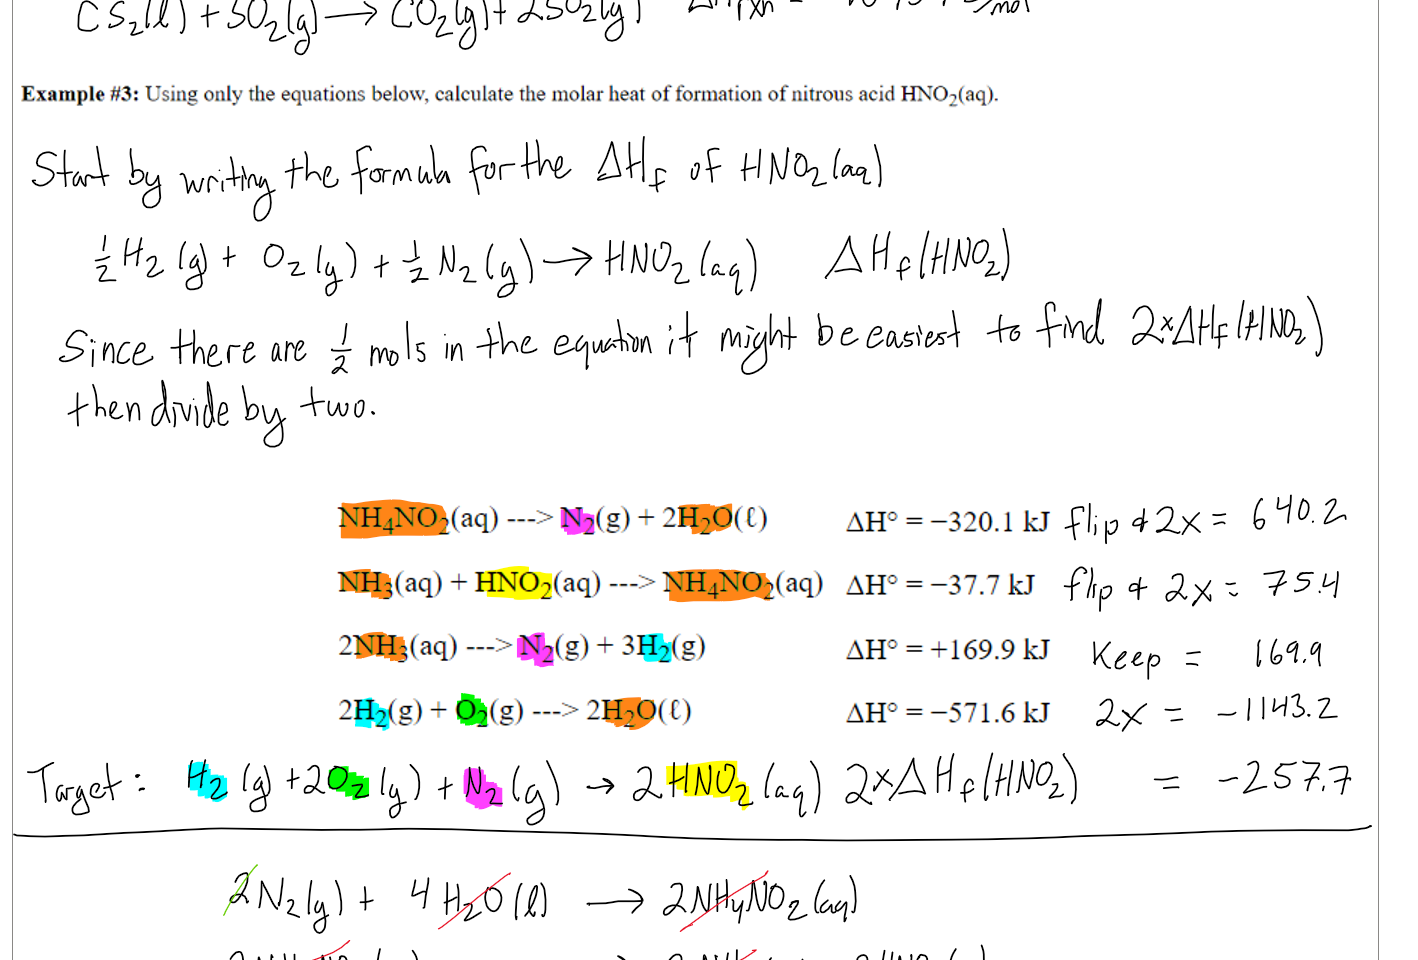 CS₂(l) + 3O₂(g) → CO₂(g) + 2SO₂(g)
Example #3: Using only the equations below, calculate the molar heat of formation of nitrous acid HNO₂(aq).
Start by writing the formula for the ΔHf of HNO₂(aq)
½H₂(g) + O₂(g) + ½N₂(g) → HNO₂(aq) ΔHf(HNO₂)
Since there are ½ mols in the equation it might be easiest to find 2×ΔHf(HNO₂)
then divide by two.
NH₄NO₂(aq) ---> N₂(g) + 2H₂O(ℓ) ΔH° = −320.1 kJ flip & 2x = 640.2
NH₃(aq) + HNO₂(aq) ---> NH₄NO₂(aq) ΔH° = −37.7 kJ flip & 2x = 75.4
2NH₃(aq) ---> N₂(g) + 3H₂(g) ΔH° = +169.9 kJ Keep = 169.9
2H₂(g) + O₂(g) ---> 2H₂O(ℓ) ΔH° = −571.6 kJ 2x = -1143.2
Target: H₂(g) + 2O₂(g) + N₂(g) → 2HNO₂(aq) 2×ΔHf(HNO₂) = -257.7
2N₂(g) + 4H₂O(l) → 2NH₄NO₂(aq)